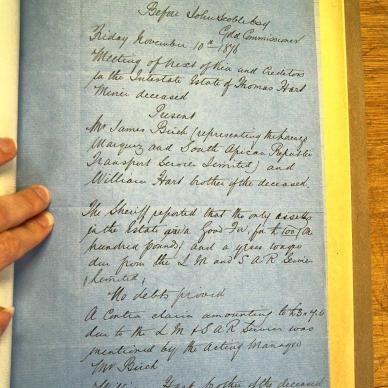 Before John Scoble Esq
Gold Commissioner
Friday November 10th 1876
Meeting of Next of Kin and Creditors
in the Intestate Estate of Thomas Hart
Miner deceased
Present
Mr James Birch (representing the
Marquez and South African Republic
Transport Service Limited) and
William Hart brother of the deceased.
The Sheriff reported that the only assets
in the Estate are a Good For, for £100 (One
hundred pounds) and a years wages
due from the L M and S A R Service
Limited,
No debts proved
A Contra claim amounting to
due to the L M & S A R Service was
mentioned by the Acting Manager
Mr Birch
Hart brother of the deceased